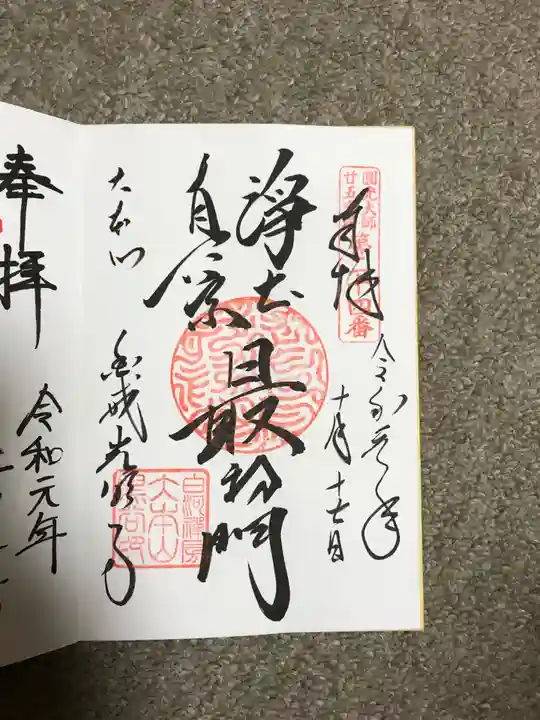 圓光大師
廿五
第二十四番
奉拝
令和元年
十月十七日
浄土真宗最初門
大本山
金戒光明寺
白河禅房
大本山
黒谷印
奉拝
令和元年